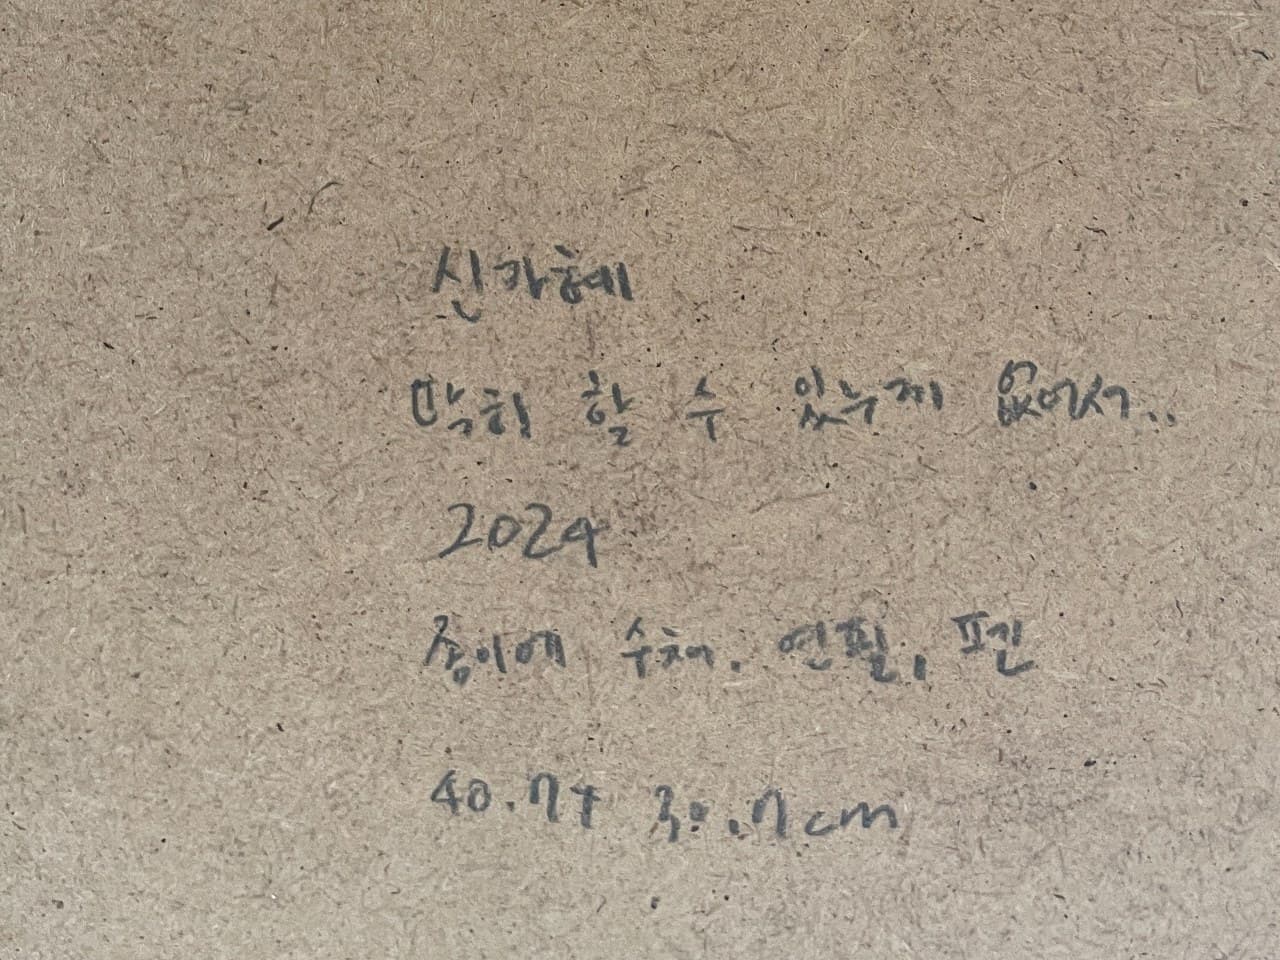 신가혜
딱히 할 수 있는게 없어서..
2024
종이에 수채, 연필, 펜
40.7x 30.7cm